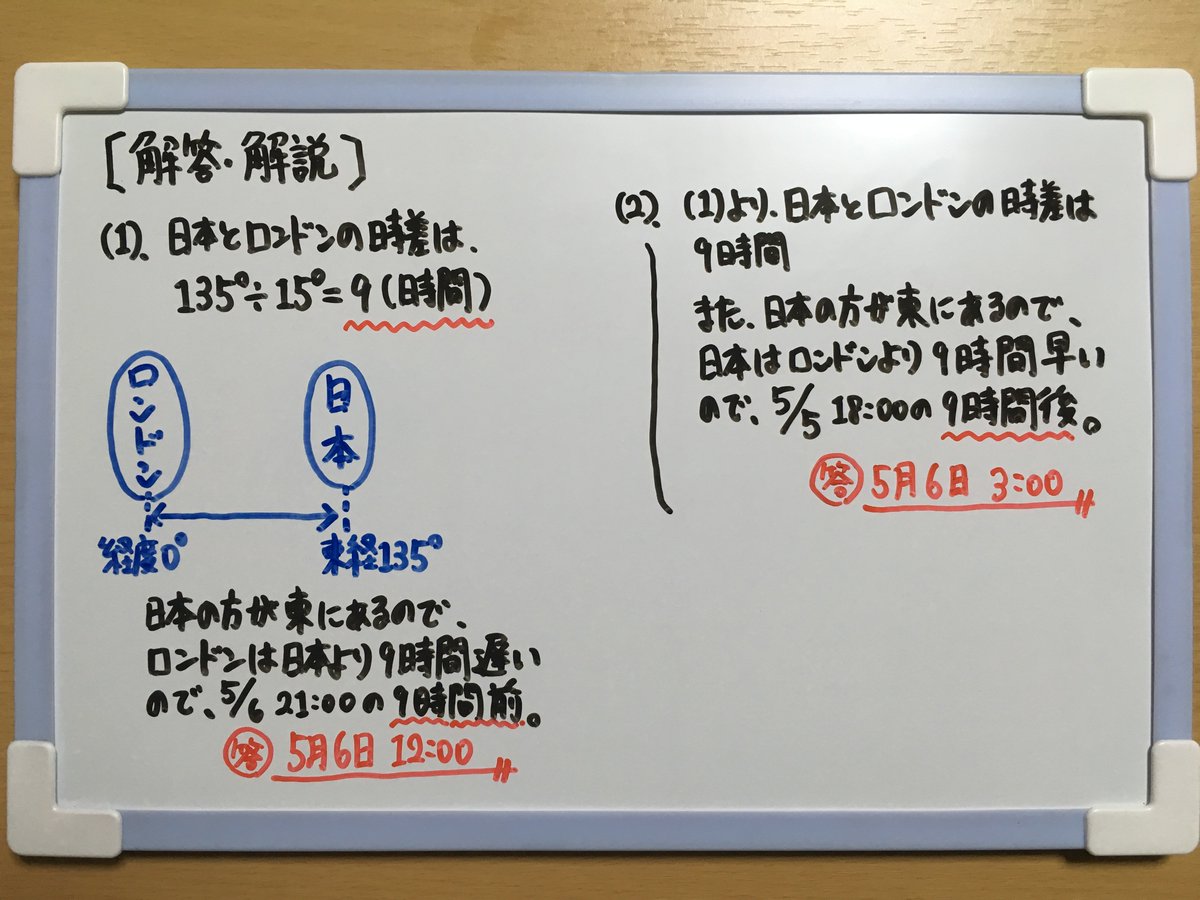 [解答・解説]
(1)、日本とロンドンの時差は、
135°÷15°=9(時間)
ロンドン
日本
経度0°
東経135°
日本の方が東にあるので、
ロンドンは日本より9時間遅い
ので、5/6 21:00の9時間前。
答 5月6日 12:00
(2)、(1)より、日本とロンドンの時差は
9時間
また、日本の方が東にあるので、
日本はロンドンより9時間早い
ので、5/5 18:00の9時間後。
答 5月6日 3:00